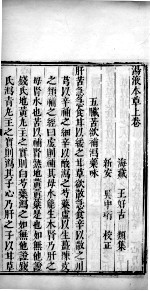 湯液本草上卷
海藏 王好古 類集
新安 吳中珩 校正
五臟苦欲補瀉藥味
肝苦急急食甘以緩之甘草欲散急食辛以散之川
芎以辛補之細辛以酸瀉之芍藥虛以生薑陳皮
之類補之經曰虛則補其母水能生木腎乃肝之
母腎水也苦以補腎熟地黃黃蘗是也如無他證
錢氏地黃丸主之實則白芍藥瀉之如無他證錢
氏瀉青丸主之實則瀉其子心乃肝之子以甘草